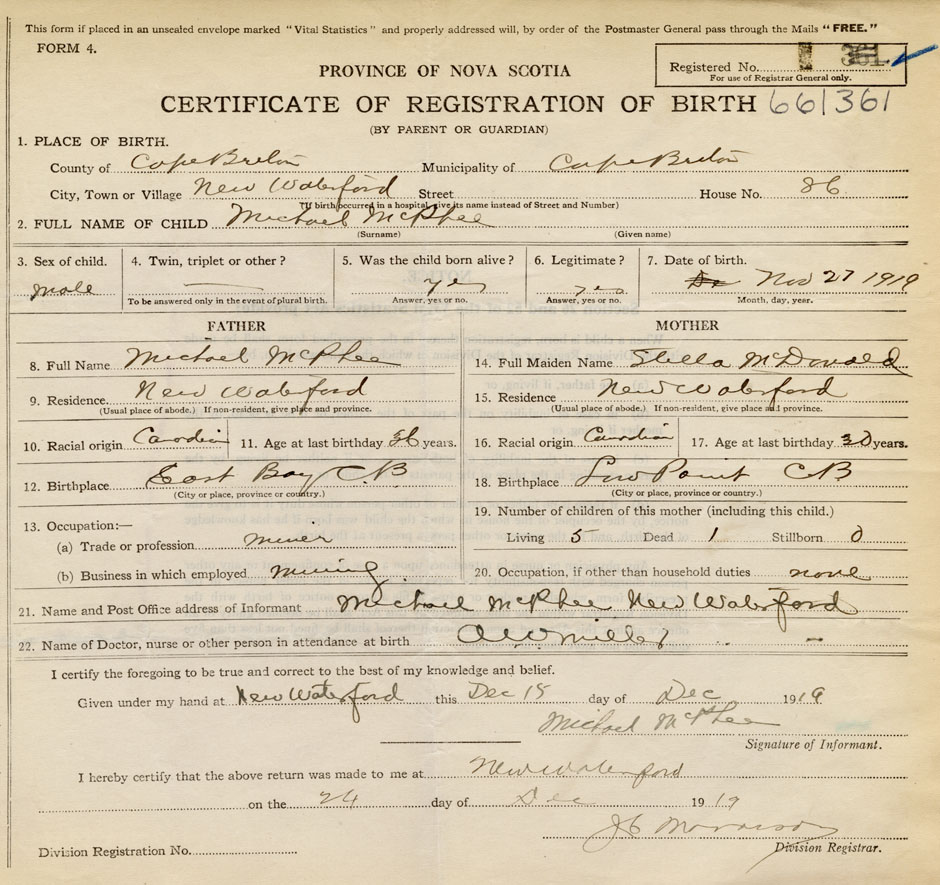 This form if placed in an unsealed envelope marked "Vital Statistics" and properly addressed will, by order of the Postmaster General pass through the Mails "FREE."
FORM 4.
Registered No. 361
For use of Registrar General only.
PROVINCE OF NOVA SCOTIA
CERTIFICATE OF REGISTRATION OF BIRTH 661361
(BY PARENT OR GUARDIAN)
1. PLACE OF BIRTH.
County of Cape Breton Municipality of Cape Breton
City, Town or Village New Waterford Street House No. 86
(If birth occurred in a hospital give its name instead of Street and Number)
2. FULL NAME OF CHILD Michael McPhee
(Surname) (Given name)
3. Sex of child. 4. Twin, triplet or other? 5. Was the child born alive? 6. Legitimate? 7. Date of birth.
male yes yes Nov 27 1919
To be answered only in the event of plural birth. Answer, yes or no. Answer, yes or no. Month, day, year.
FATHER MOTHER
8. Full Name Michael McPhee 14. Full Maiden Name Stella McDonald
9. Residence New Waterford 15. Residence New Waterford
(Usual place of abode.) If non-resident, give place and province. (Usual place of abode.) If non-resident, give place and province.
10. Racial origin Canadian 11. Age at last birthday 36 years. 16. Racial origin Canadian 17. Age at last birthday 30 years.
12. Birthplace East Bay C.B 18. Birthplace Low Point CB
(City or place, province or country.) (City or place, province or country.)
13. Occupation:— 19. Number of children of this mother (including this child.)
(a) Trade or profession miner Living 5 Dead 1 Stillborn 0
(b) Business in which employed mining 20. Occupation, if other than household duties none
21. Name and Post Office address of Informant Michael McPhee New Waterford
22. Name of Doctor, nurse or other person in attendance at birth Miller
I certify the foregoing to be true and correct to the best of my knowledge and belief.
Given under my hand at New Waterford this Dec 15 day of Dec 1919
Michael McPhee
Signature of Informant.
I hereby certify that the above return was made to me at New Waterford
on the 24 day of Dec 1919
Morrison
Division Registration No. Division Registrar.